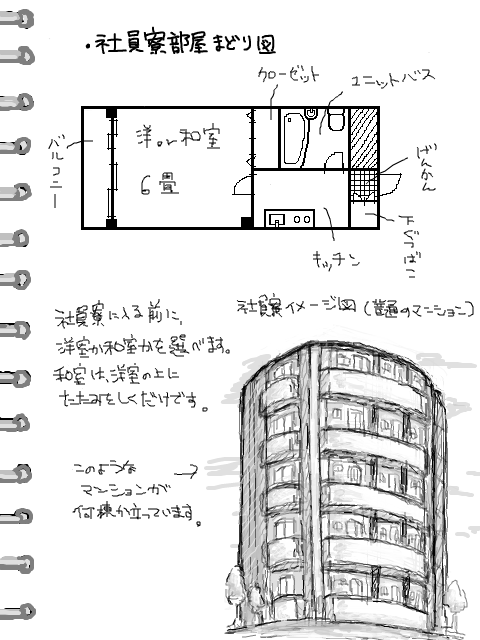 ・社員寮部屋まどり図
クローゼット
ユニットバス
バルコニー
洋or和室
6畳
げんかん
下ぐつばこ
キッチン
社員寮に入る前に、
洋室か和室かを選べます。
和室は、洋室の上に
たたみをしくだけです。
社員寮イメージ図(普通のマンション)
このような
マンションが
何棟か立っています。